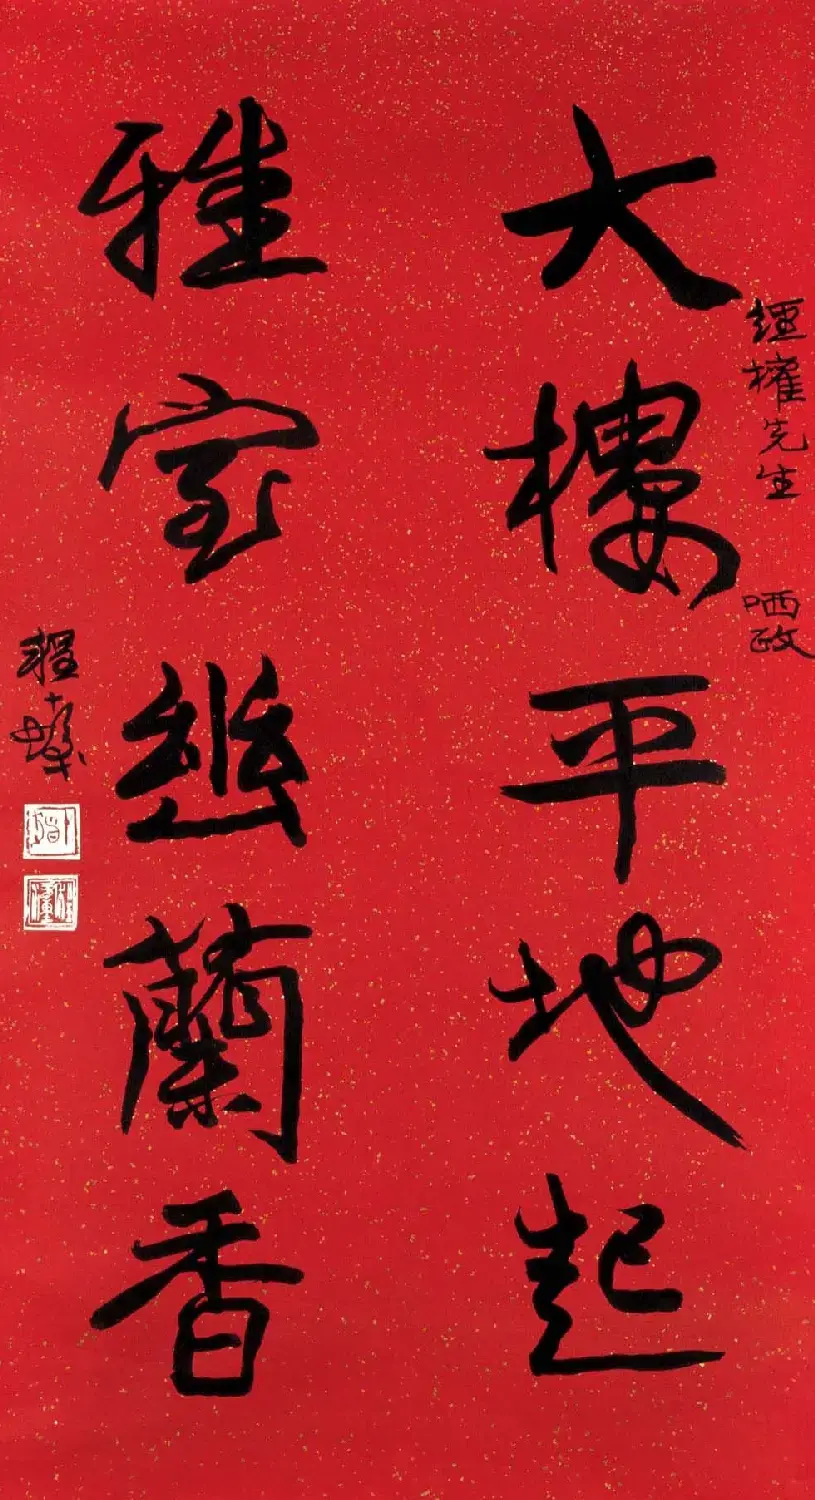 經權先生 哂政
大樓平地起
雅室幽蘭香
程十髮